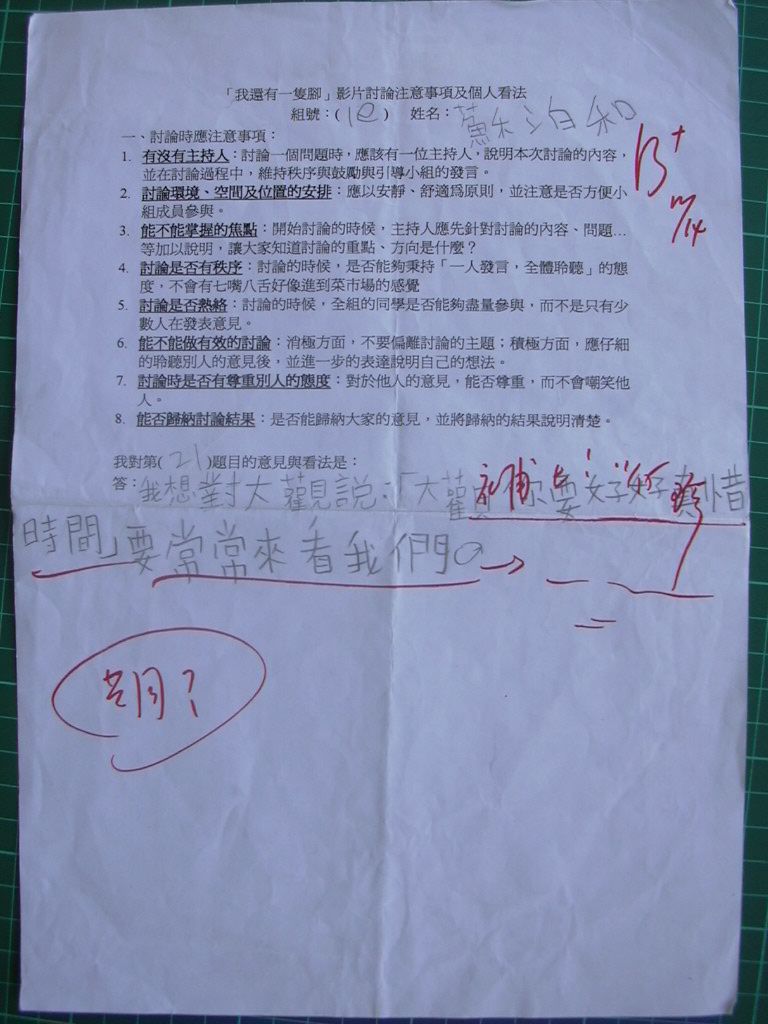 「我還有一隻腳」影片討論注意事項及個人看法
組號：( 1e ) 姓名：蘇泊和
B+
一、討論時應注意事項：
1. 有沒有主持人：討論一個問題時，應該有一位主持人，說明本次討論的內容，
並在討論過程中，維持秩序與鼓勵與引導小組的發言。
2. 討論環境、空間及位置的安排：應以安靜、舒適為原則，並注意是否方便小
組成員參與。
3. 能不能掌握的焦點：開始討論的時候，主持人應先針對討論的內容、問題…
等加以說明，讓大家知道討論的重點、方向是什麼？
4. 討論是否有秩序：討論的時候，是否能夠秉持「一人發言，全體聆聽」的態
度，不會有七嘴八舌好像進到菜市場的感覺
5. 討論是否熱絡：討論的時候，全組的同學是否能夠盡量參與，而不是只有少
數人在發表意見。
6. 能不能做有效的討論：消極方面，不要偏離討論的主題；積極方面，應仔細
的聆聽別人的意見後，並進一步的表達說明自己的想法。
7. 討論時是否有尊重別人的態度：對於他人的意見，能否尊重，而不會嘲笑他
人。
8. 能否歸納討論結果：是否能歸納大家的意見，並將歸納的結果說明清楚。
我對第( 21 )題目的意見與看法是：
答：我想對大觀說：「大觀你要好好珍惜
時間」要常常來看我們。